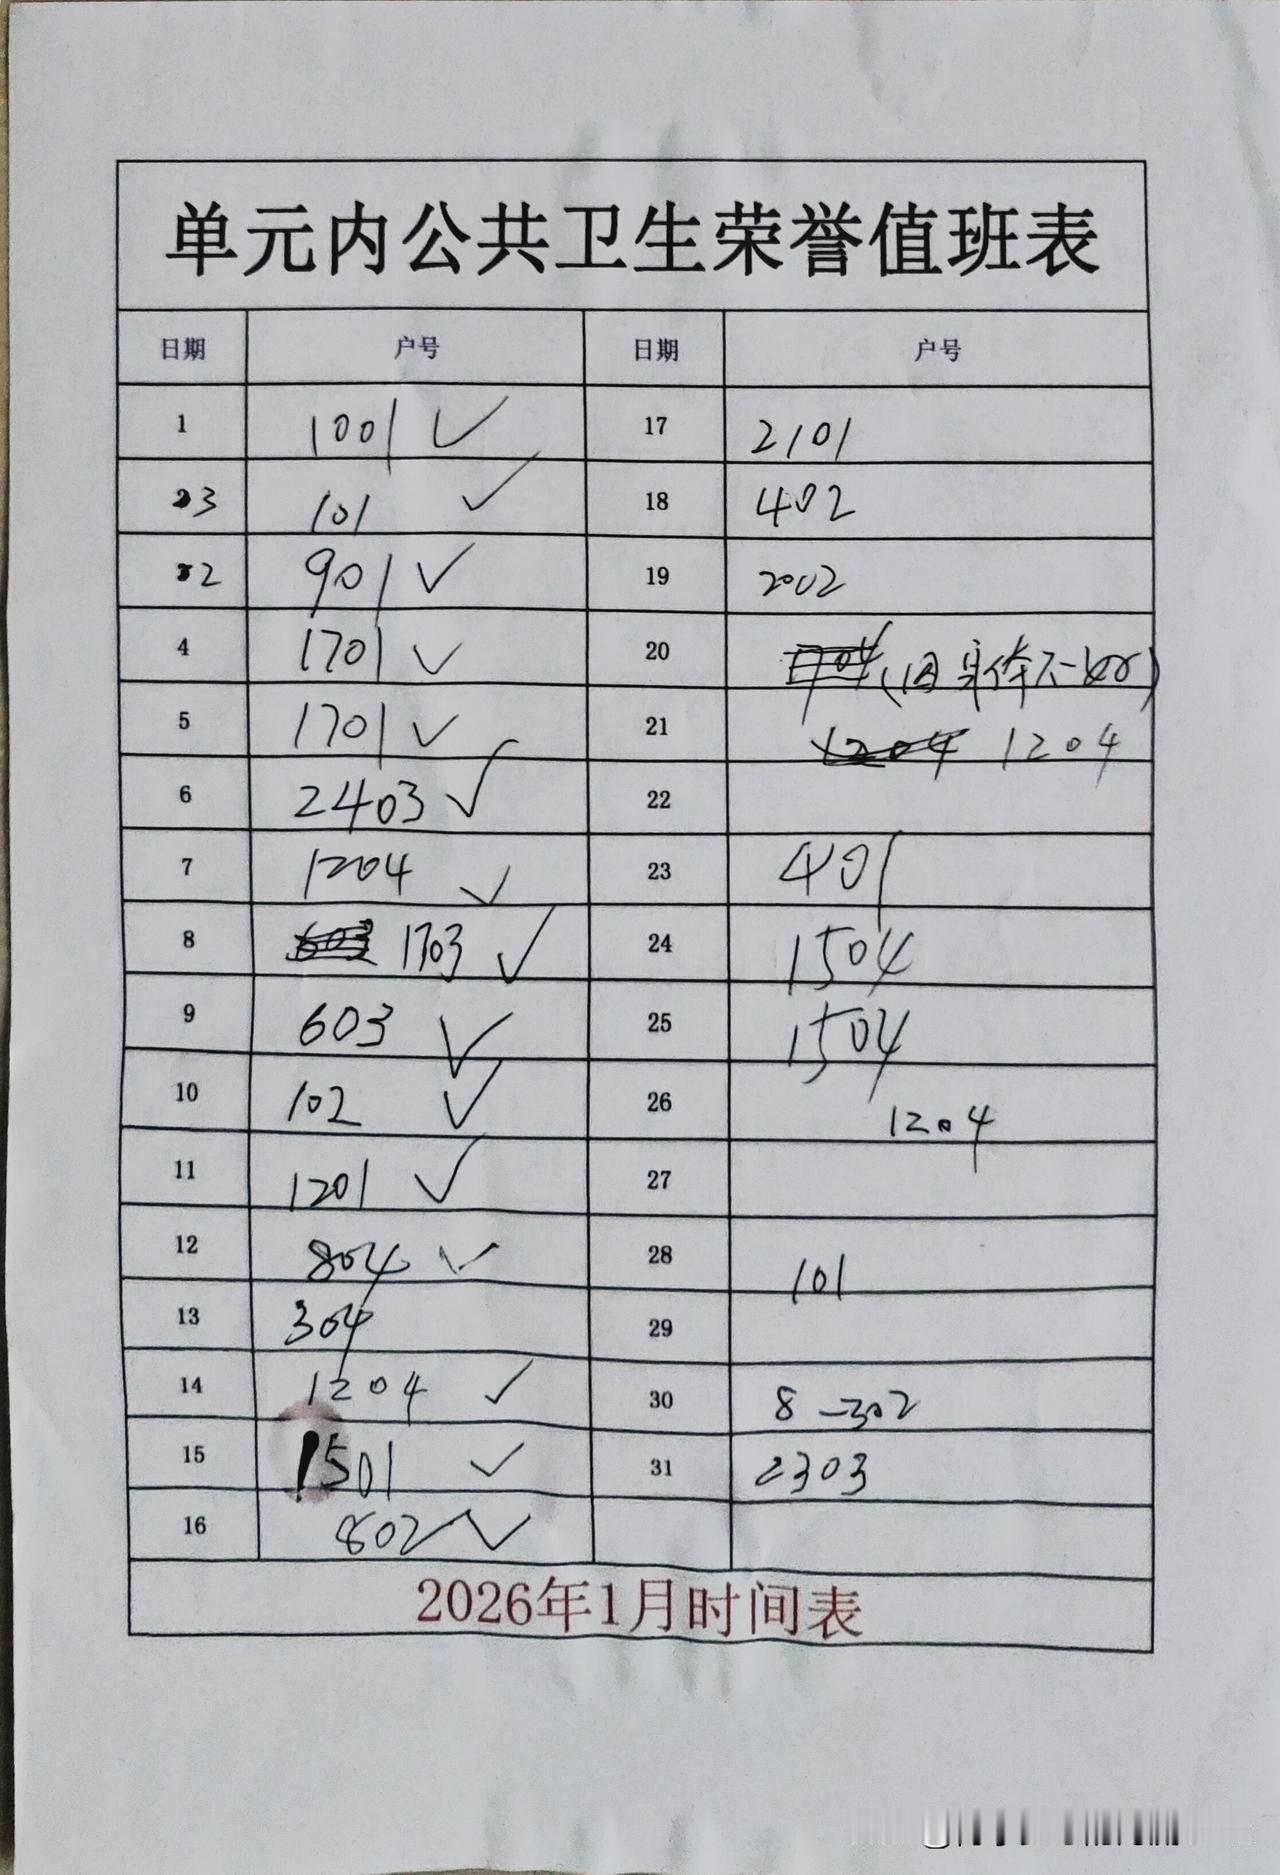 单元内公共卫生荣誉值班表
日期 户号 日期 户号
1 1001 ✓ 17 2101
3 101 ✓ 18 402
2 901 ✓ 19 2002
4 1701 ✓ 20 (因身体不好)
5 1701 ✓ 21 1204 1204
6 2403 ✓ 22
7 1204 ✓ 23 401
8 603 1703 ✓ 24 1504
9 603 ✓ 25 1504
10 102 ✓ 26 1204
11 1201 ✓ 27
12 804 ✓ 28 101
13 304 29
14 1204 ✓ 30 8-302
15 1501 ✓ 31 2303
16 802 ✓
2026年1月时间表